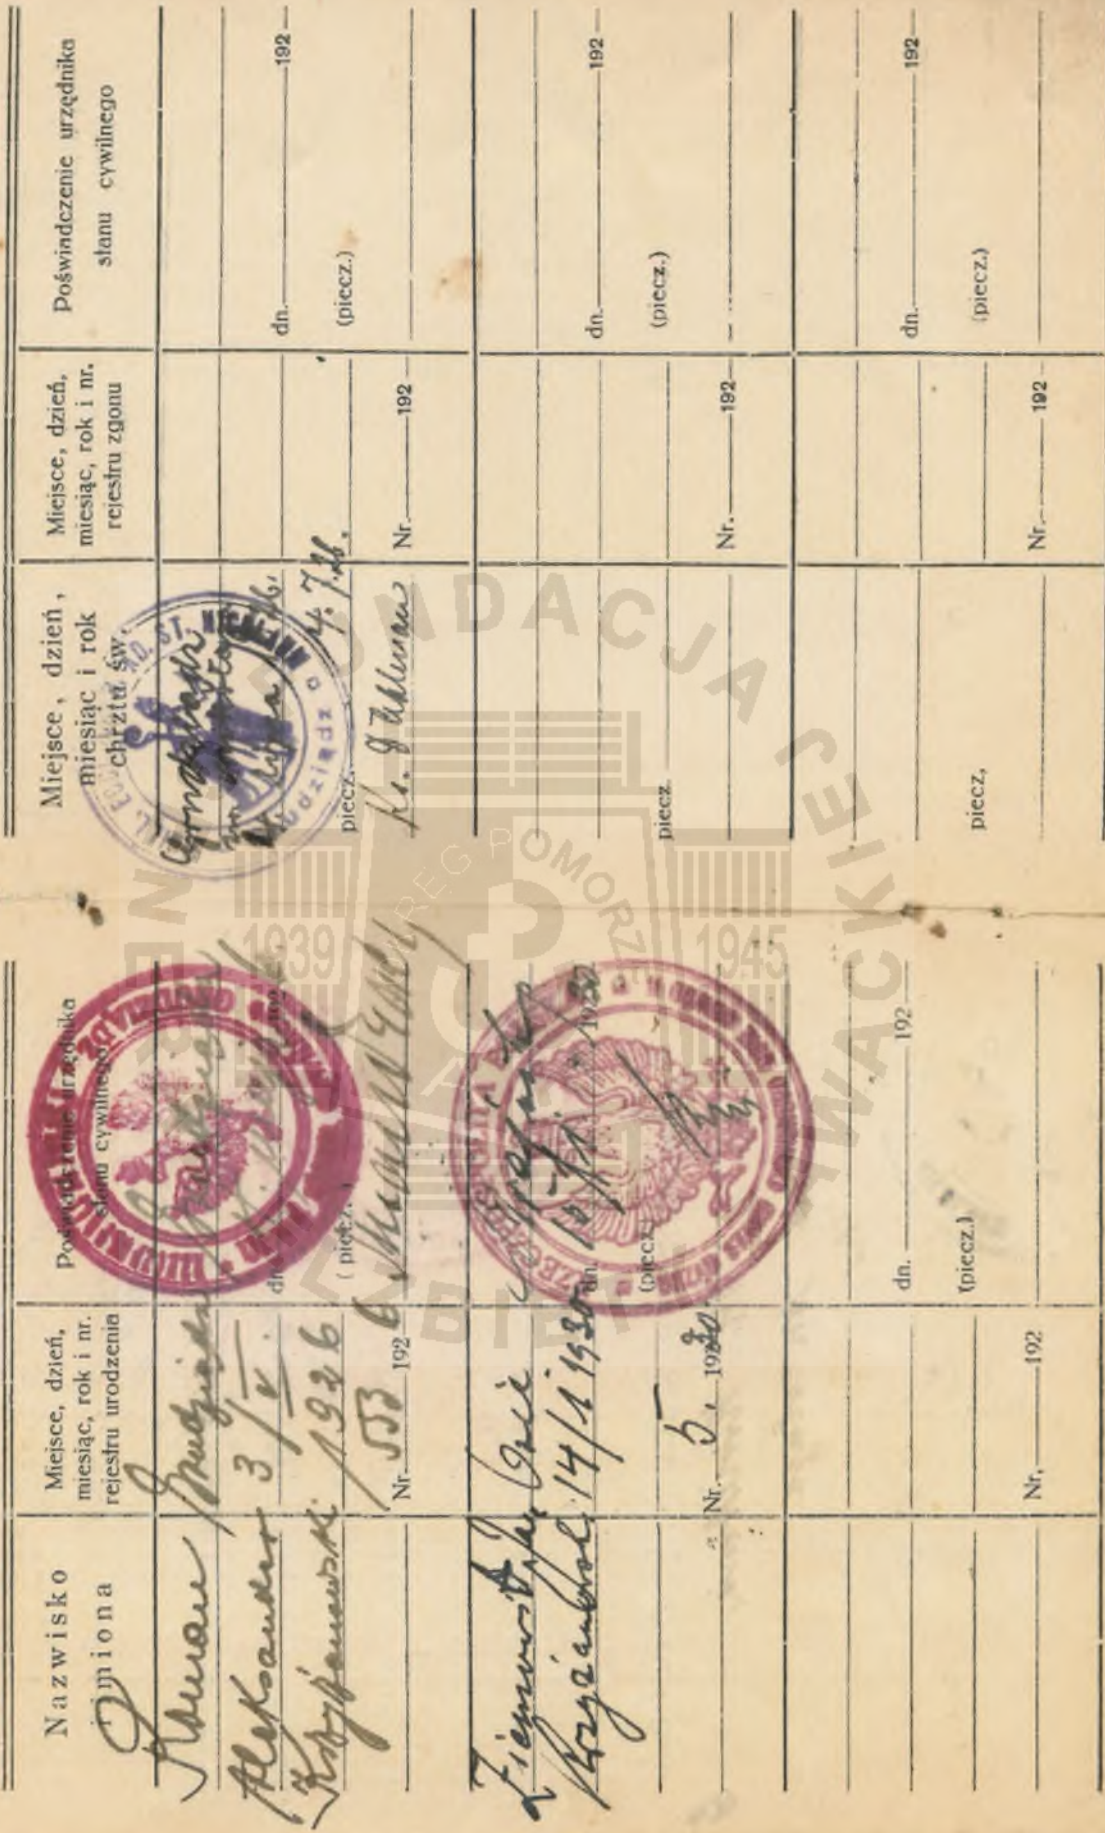 Nazwisko
i imiona
Miejsce, dzień,
miesiąc, rok i nr.
rejestru urodzenia
Poświadczenie urzędnika
stanu cywilnego
Miejsce, dzień,
miesiąc i rok
chrztu św.
Miejsce, dzień,
miesiąc, rok i nr.
rejestru zgonu
Poświadczenie urzędnika
stanu cywilnego
Roman
Aleksander
Krzyżanowski
Grudziądz
3/V.
1926
Nr. 553 1926
dn.
(piecz.)
GRUDZIĄDZ
Grudziądz
4.7.26.
piecz.
Ks.
Nr. 192
dn. 192
(piecz.)
Ziemowit Jan
Krzyżanowski
Osie
14/1 1930
Nr. 5. 1930
dn. 1930
(piecz.)
piecz.
Nr. 192
dn. 192
(piecz.)
Nr. 192
dn. 192
(piecz.)
piecz.
Nr. 192
dn. 192
(piecz.)
FUNDACJA
GENERAŁ ELŻBIETY ZAWACKIEJ
REG POMORZE
1939
1945
AK